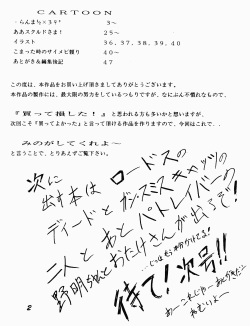 CARTOON
・らんま½×3デ³　3〜
ああスクルドさま！　25〜
イラスト　36，37，38，39，40
こまった時のサイメビ頼り　40〜
あとがき＆編集後記　47
この度は、本作品をお買い上げ頂きましてありがとうございます。
本作品の製作には、最大限の努力をしているつもりですが、なにぶん不慣れなもので、
『買って損した！』と思われる方も多いかと思いますが、
次回こそ『買ってよかった』と言って頂ける作品を作りますので、今回はこれで、．
みのがしてくれよ〜
と言うことで、とりあえずご覧下さい。
次に
出す本は
ロードスの
ディードとガンスミスキャッツの
二人とあとパトレイバーの
野明ちゃんとおたけさんが出るぞ！
待て！次号!!
ねむいよー
2